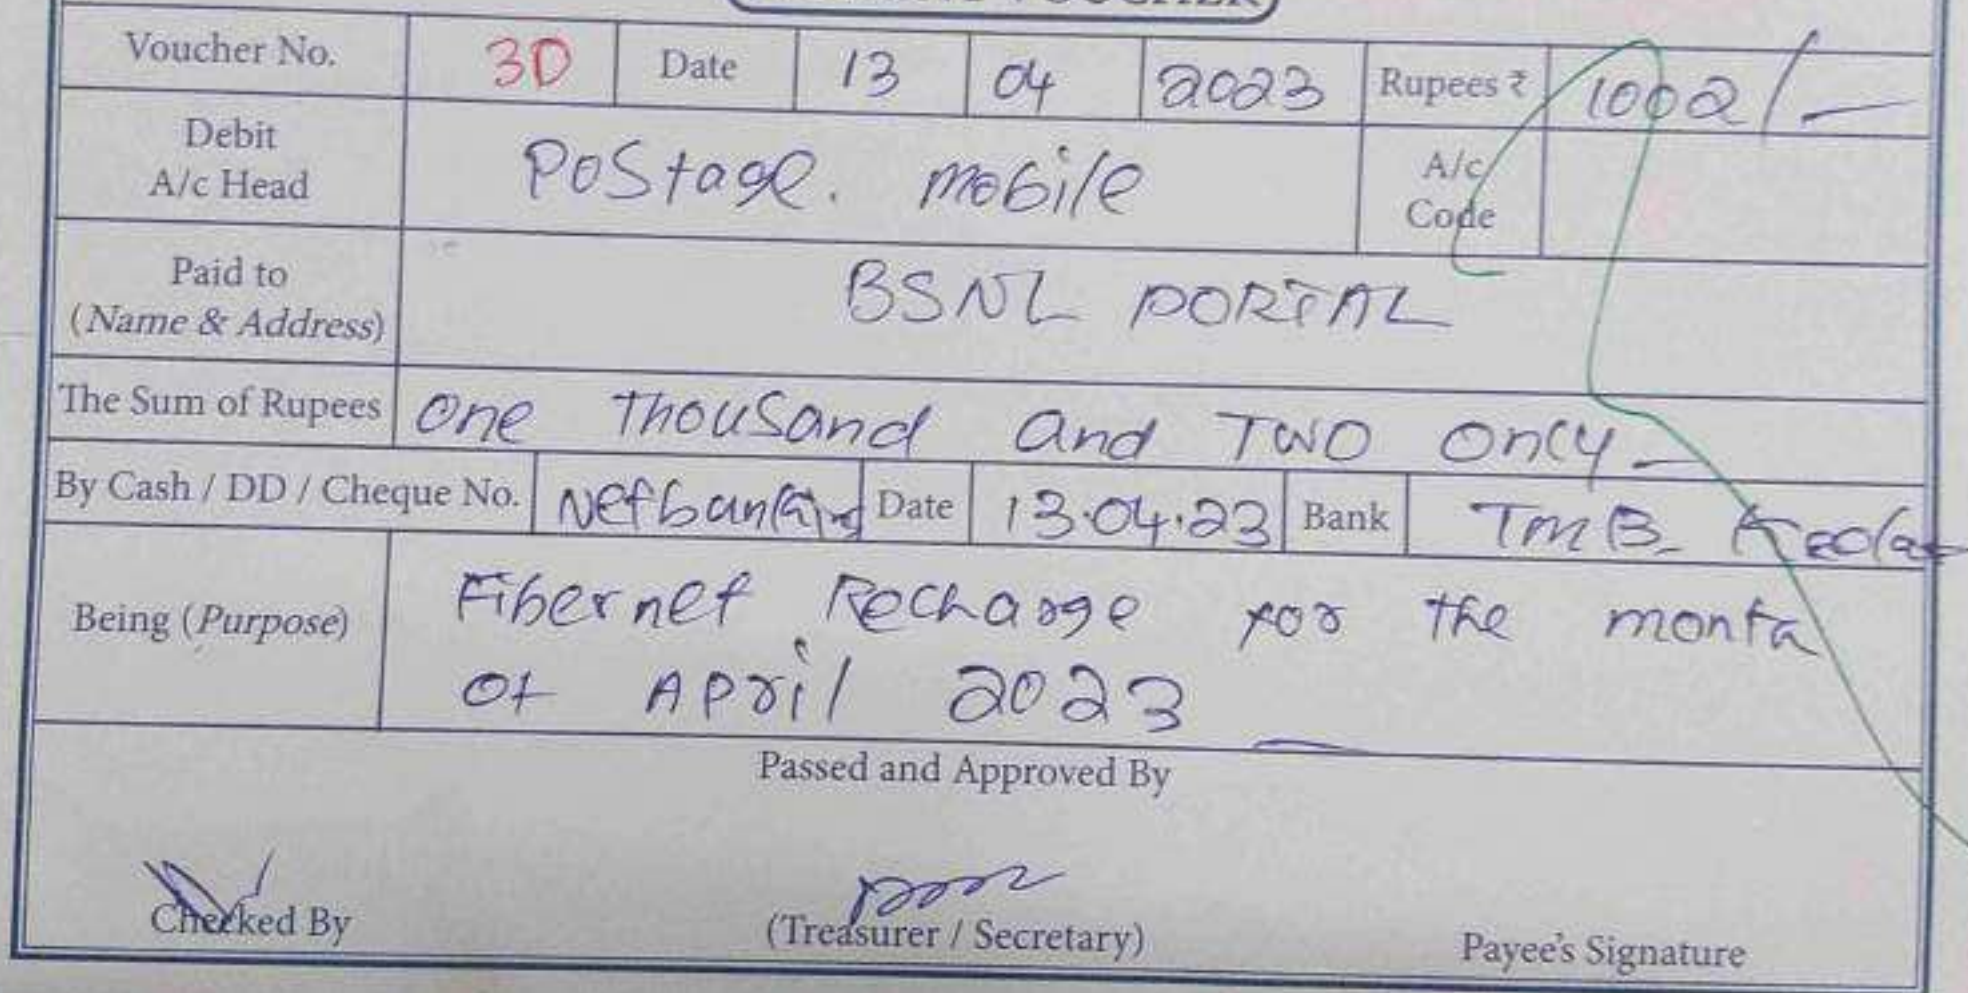 VOUCHER
Voucher No. 30 Date 13 04 2023 Rupees ₹ 1002/-
Debit A/c Head Postage. mobile A/c Code
Paid to (Name & Address) BSNL PORTAL
The Sum of Rupees One Thousand and Two Only
By Cash / DD / Cheque No. Netbanking Date 13.04.23 Bank TMB
Being (Purpose) Fibernet Recharge for the month
of April 2023
Passed and Approved By
Checked By (Treasurer / Secretary) Payee's Signature